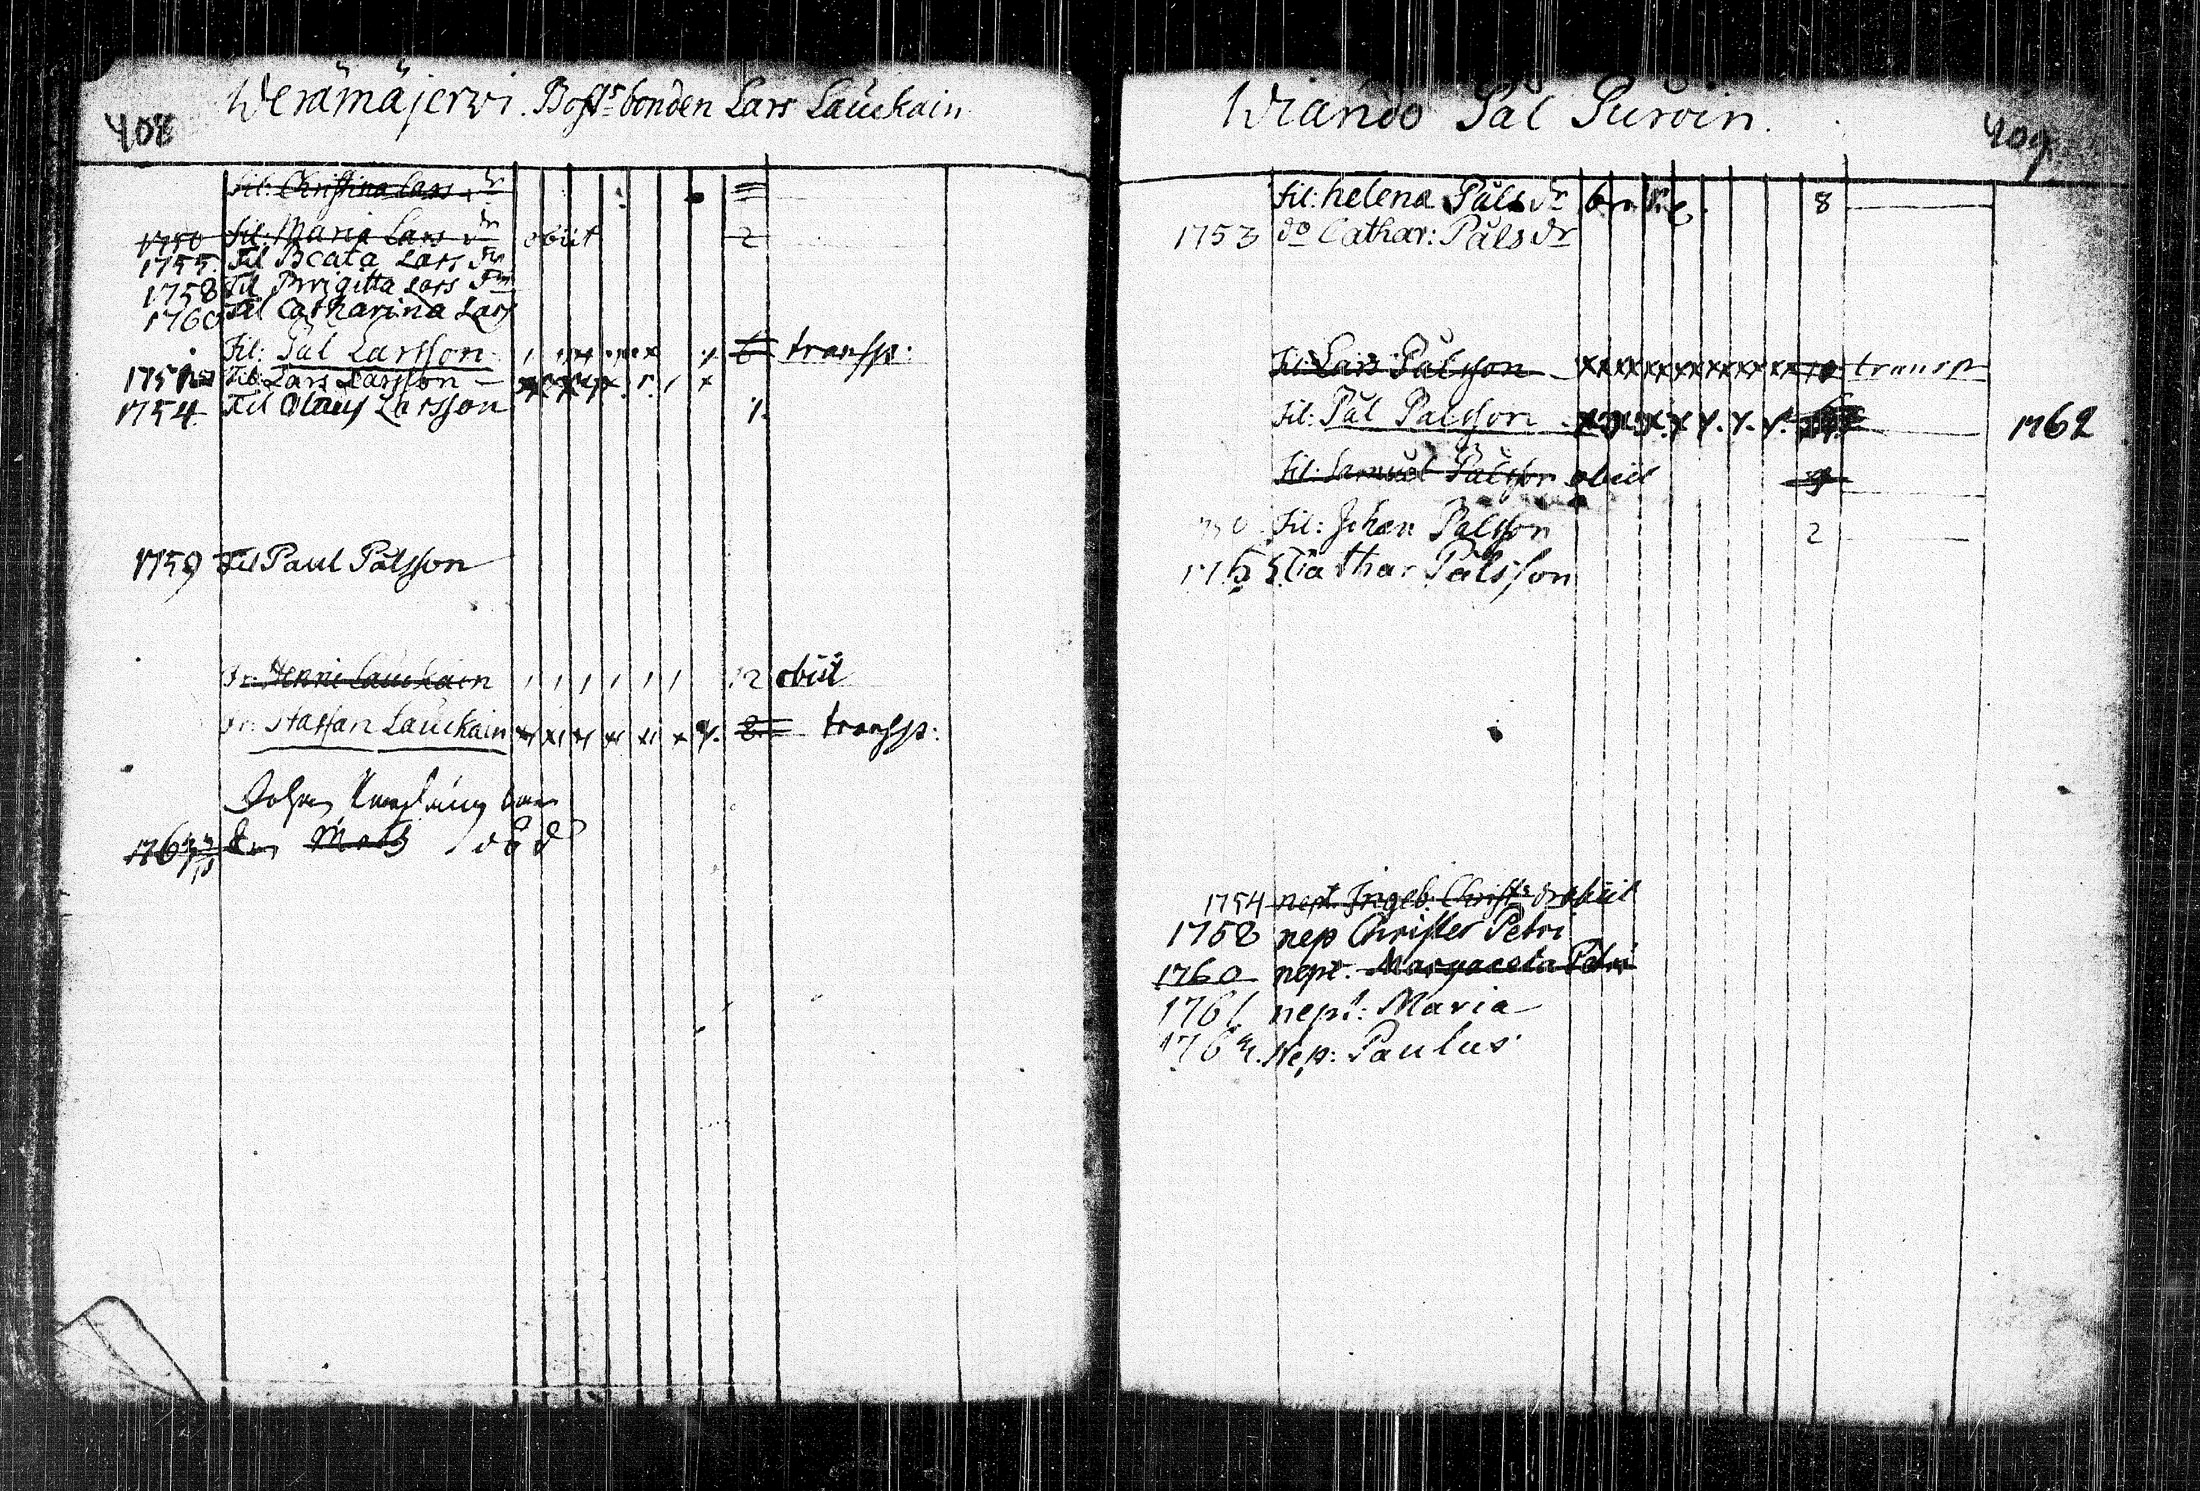 408
Werämäjerwi. Bofsbonden Lars Lauckain
Fil: Christina Lars dr
1750 fil: Maria Lars dr obiit 2
1755. Fil Beata Lars dr
1758 Fil Brigitta Lars dr
1760 Fil Catharina Lars
Fil: Pål Larsson 6 transp:
Fil Lars Larsson
1754 Fil Olauf Larsson
1759 Fil Paul Pålsson
Fr: Henric Lauckain 12 obiit
Fr: Staffan Lauckain 8 transp:
Johan
Mats död
409
Wiando Pål Purvin.
fil: helena Påls dr 8
1753 do Cathar: Påls dr
Fil: Lars Pålsson transp
Fil: Pål Pålsson 1762
Fil: Samuel Pålsson obiit 9
Fil: Johan Pålsson 2
Pålsson
1754 nept. Ingeb. Christs dr obiit
1758 nep Christer Petri
1760 nept. Margareta Petri
1761 nept: Maria
Nep: Paulus